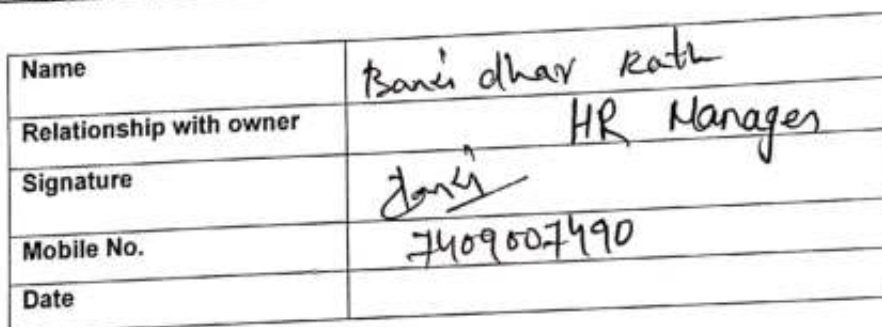 Name Bansi dhar Rath
Relationship with owner HR Manager
Signature
Mobile No. 7409007490
Date